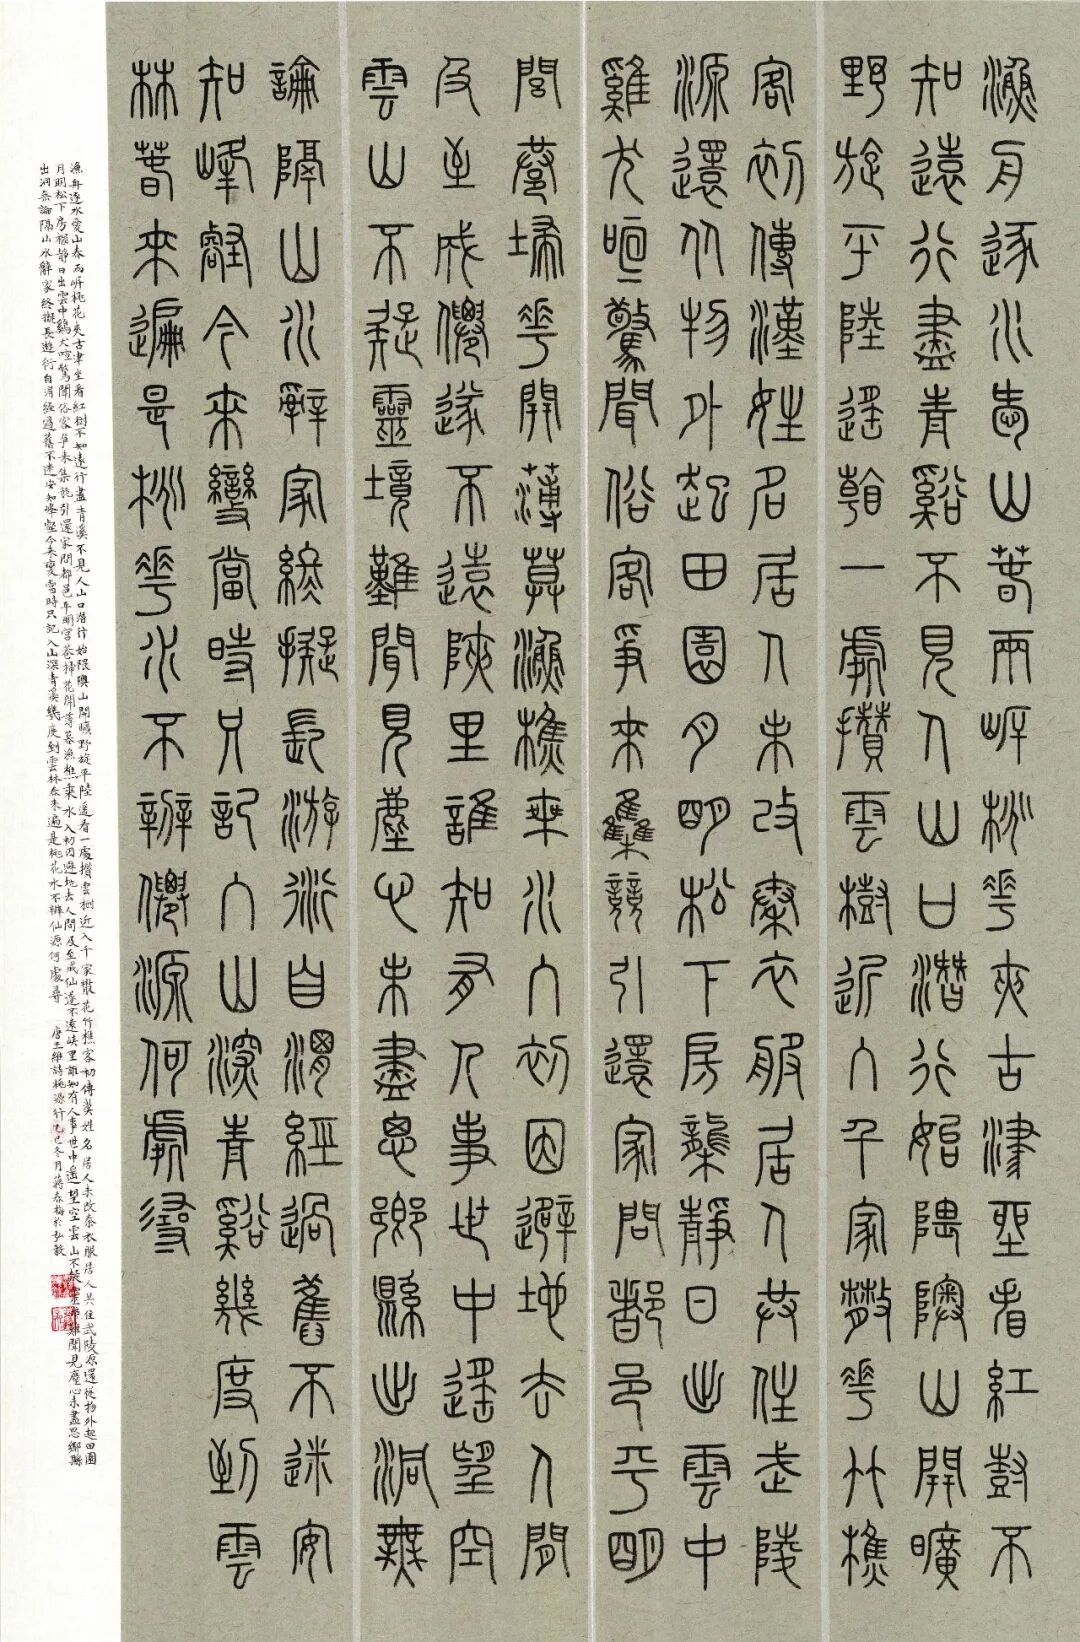 漁舟逐水愛山春兩岸桃花夾古津坐看紅樹不
知遠行盡青谿不見人山口潛行始隈隩山開曠
野旋平陸遙看一處攢雲樹近入千家散花竹樵
客初傳漢姓名居人未改秦衣服居人共住武陵
源還從物外起田園月明松下房櫳靜日出雲中
雞犬喧驚聞俗客爭來集競引還家問都邑平明
閭巷掃花開薄暮漁樵乘水入初因避地去人間
及至成僊遂不遠陝里誰知有人事世中遙望空
雲山不疑靈境難聞見塵心未盡思鄉縣出洞無
論隔山水辭家終擬長游衍自謂經過舊不迷安
知峰壑今來變當時只記入山深青谿幾度到雲
林春來遍是桃花水不辨僊源何處尋
漁舟逐水愛山春兩岍桃花夾古津坐看紅樹不知遠行盡青溪不見人山口潛行始隈隩山開曠野旋平陸遙看一處攢雲樹近入千家散花竹樵客初傳漢姓名居人未改秦衣服居人共住武陵源還從物外起田園
月明松下房櫳靜日出雲中鷄犬喧驚聞俗客爭來集競引還家問都邑平明宮巷掃花開薄暮漁樵乘水入初因避地去人間及至成仙遂不遠峽里誰知有人事世中遙望空雲山不疑靈境難聞見塵心未盡思鄉縣
出洞無論隔山水辭家終擬長遊衍自謂經過舊不迷安知峰壑今來變當時只記入山深青溪幾度到雲林春來遍是桃花水不辨仙源何處尋 唐王維詩桃源行乙巳冬月蔣春梅於弘毅